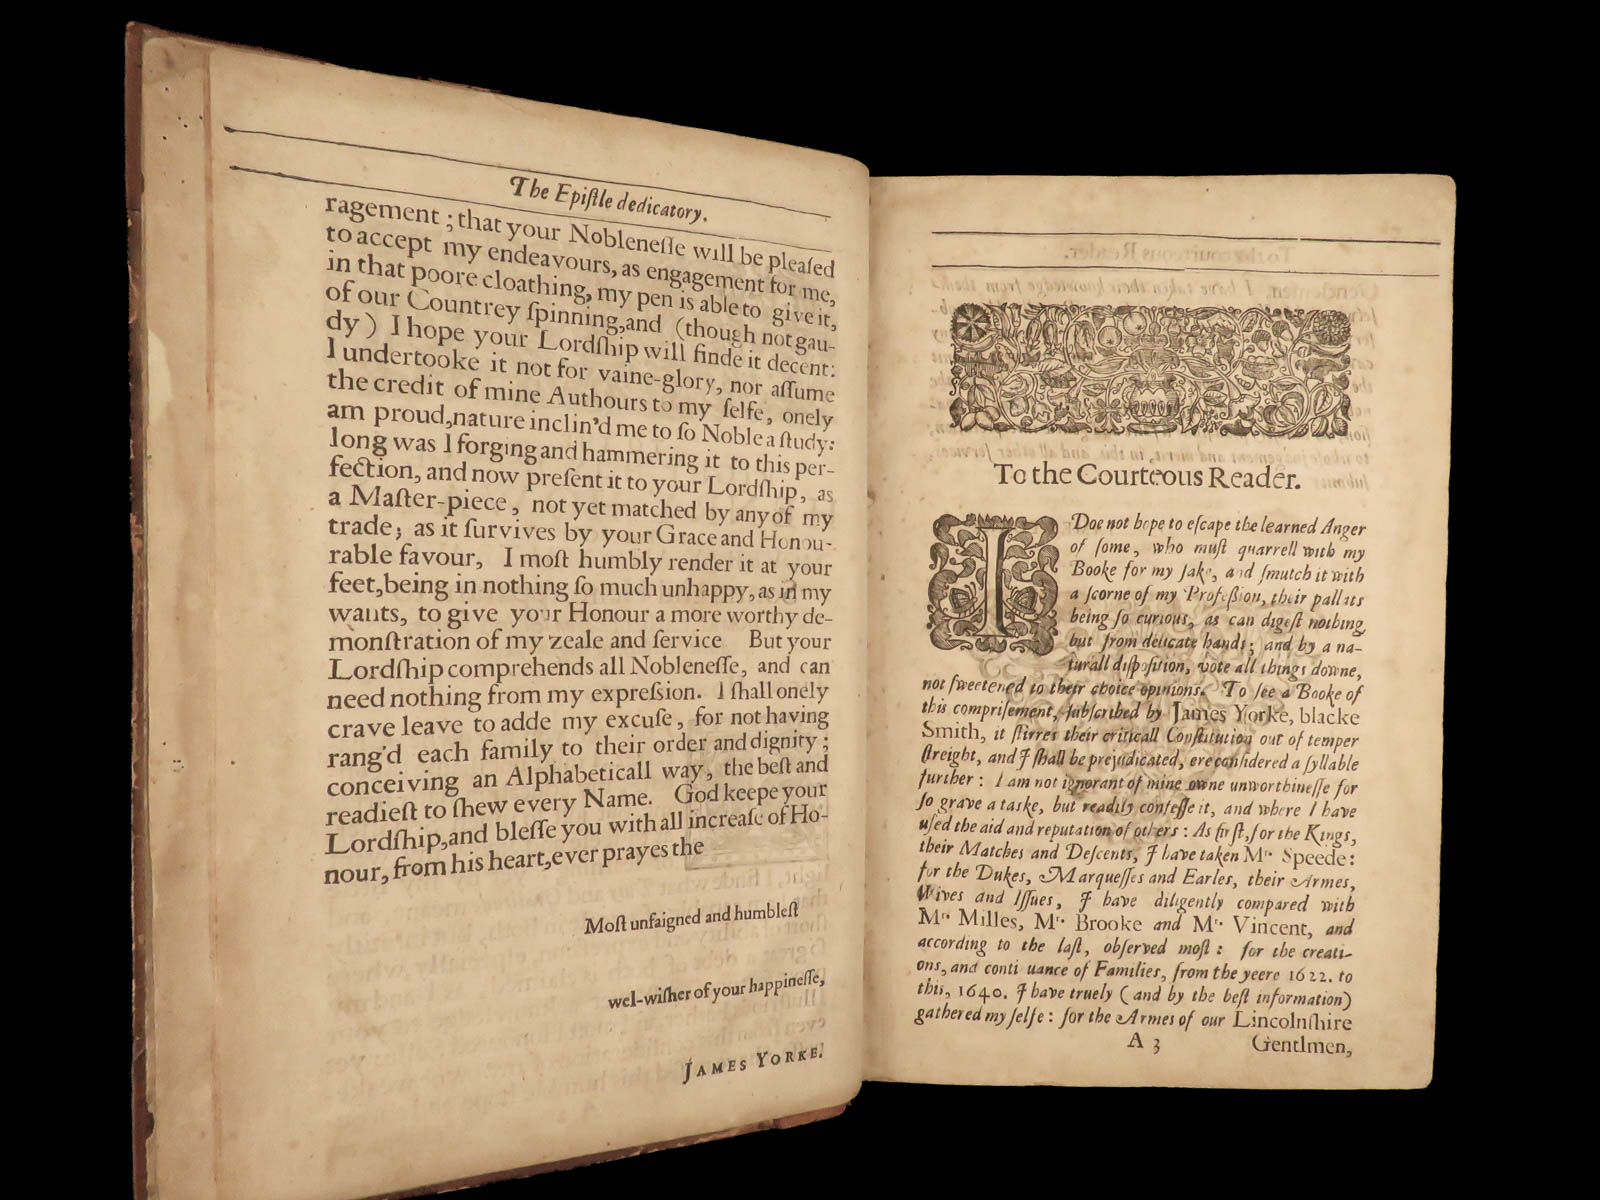 The Epiſtle dedicatory.
ragement; that your Nobleneſſe will be pleaſed
to accept my endeavours, as engagement for me,
in that poore cloathing, my pen is able to give it,
of our Countrey ſpinning, and (though not gau-
dy) I hope your Lordſhip will finde it decent:
I undertooke it not for vaine-glory, nor aſſume
the credit of mine Authours to my ſelfe, onely
am proud, nature inclin'd me to ſo Noble a ſtudy:
long was I forging and hammering it to this per-
fection, and now preſent it to your Lordſhip, as
a Maſter-piece, not yet matched by any of my
trade; as it ſurvives by your Grace and Honou-
rable favour, I moſt humbly render it at your
feet, being in nothing ſo much unhappy, as in my
wants, to give your Honour a more worthy de-
monſtration of my zeale and ſervice But your
Lordſhip comprehends all Nobleneſſe, and can
need nothing from my expreſsion. I ſhall onely
crave leave to adde my excuſe, for not having
rang'd each family to their order and dignity;
conceiving an Alphabeticall way, the beſt and
readieſt to ſhew every Name. God keepe your
Lordſhip, and bleſſe you with all increaſe of Ho-
nour, from his heart, ever prayes the
Moſt unfaigned and humbleſt
wel-wiſher of your happineſſe,
JAMES YORKE.
To the Courteous Reader.
I Doe not hope to eſcape the learned Anger
of ſome, who muſt quarrell with my
Booke for my ſake, and ſmutch it with
a ſcorne of my Profeſsion, their pallats
being ſo curious, as can digeſt nothing
but from delicate hands; and by a na-
turall diſpoſition, vote all things downe,
not ſweetened to their choice opinions. To ſee a Booke of
this compriſement, ſubſcribed by James Yorke, blacke
Smith, it ſtirres their criticall Conſtitution out of temper
ſtreight, and I ſhall be prejudicated, ere conſidered a ſyllable
further: I am not ignorant of mine owne unworthineſſe for
ſo grave a taske, but readily confeſſe it, and where I have
uſed the aid and reputation of others: As firſt, for the Kings,
their Matches and Deſcents, I have taken Mr. Speede:
for the Dukes, Marqueſſes and Earles, their Armes,
Wives and Iſſues, I have diligently compared with
Mr. Milles, Mr. Brooke and Mr. Vincent, and
according to the laſt, obſerved moſt: for the creati-
ons, and conti uance of Families, from the yeere 1622. to
this, 1640. I have truely (and by the beſt information)
gathered my ſelfe: for the Armes of our Lincolnſhire
A 3 Gentlmen,